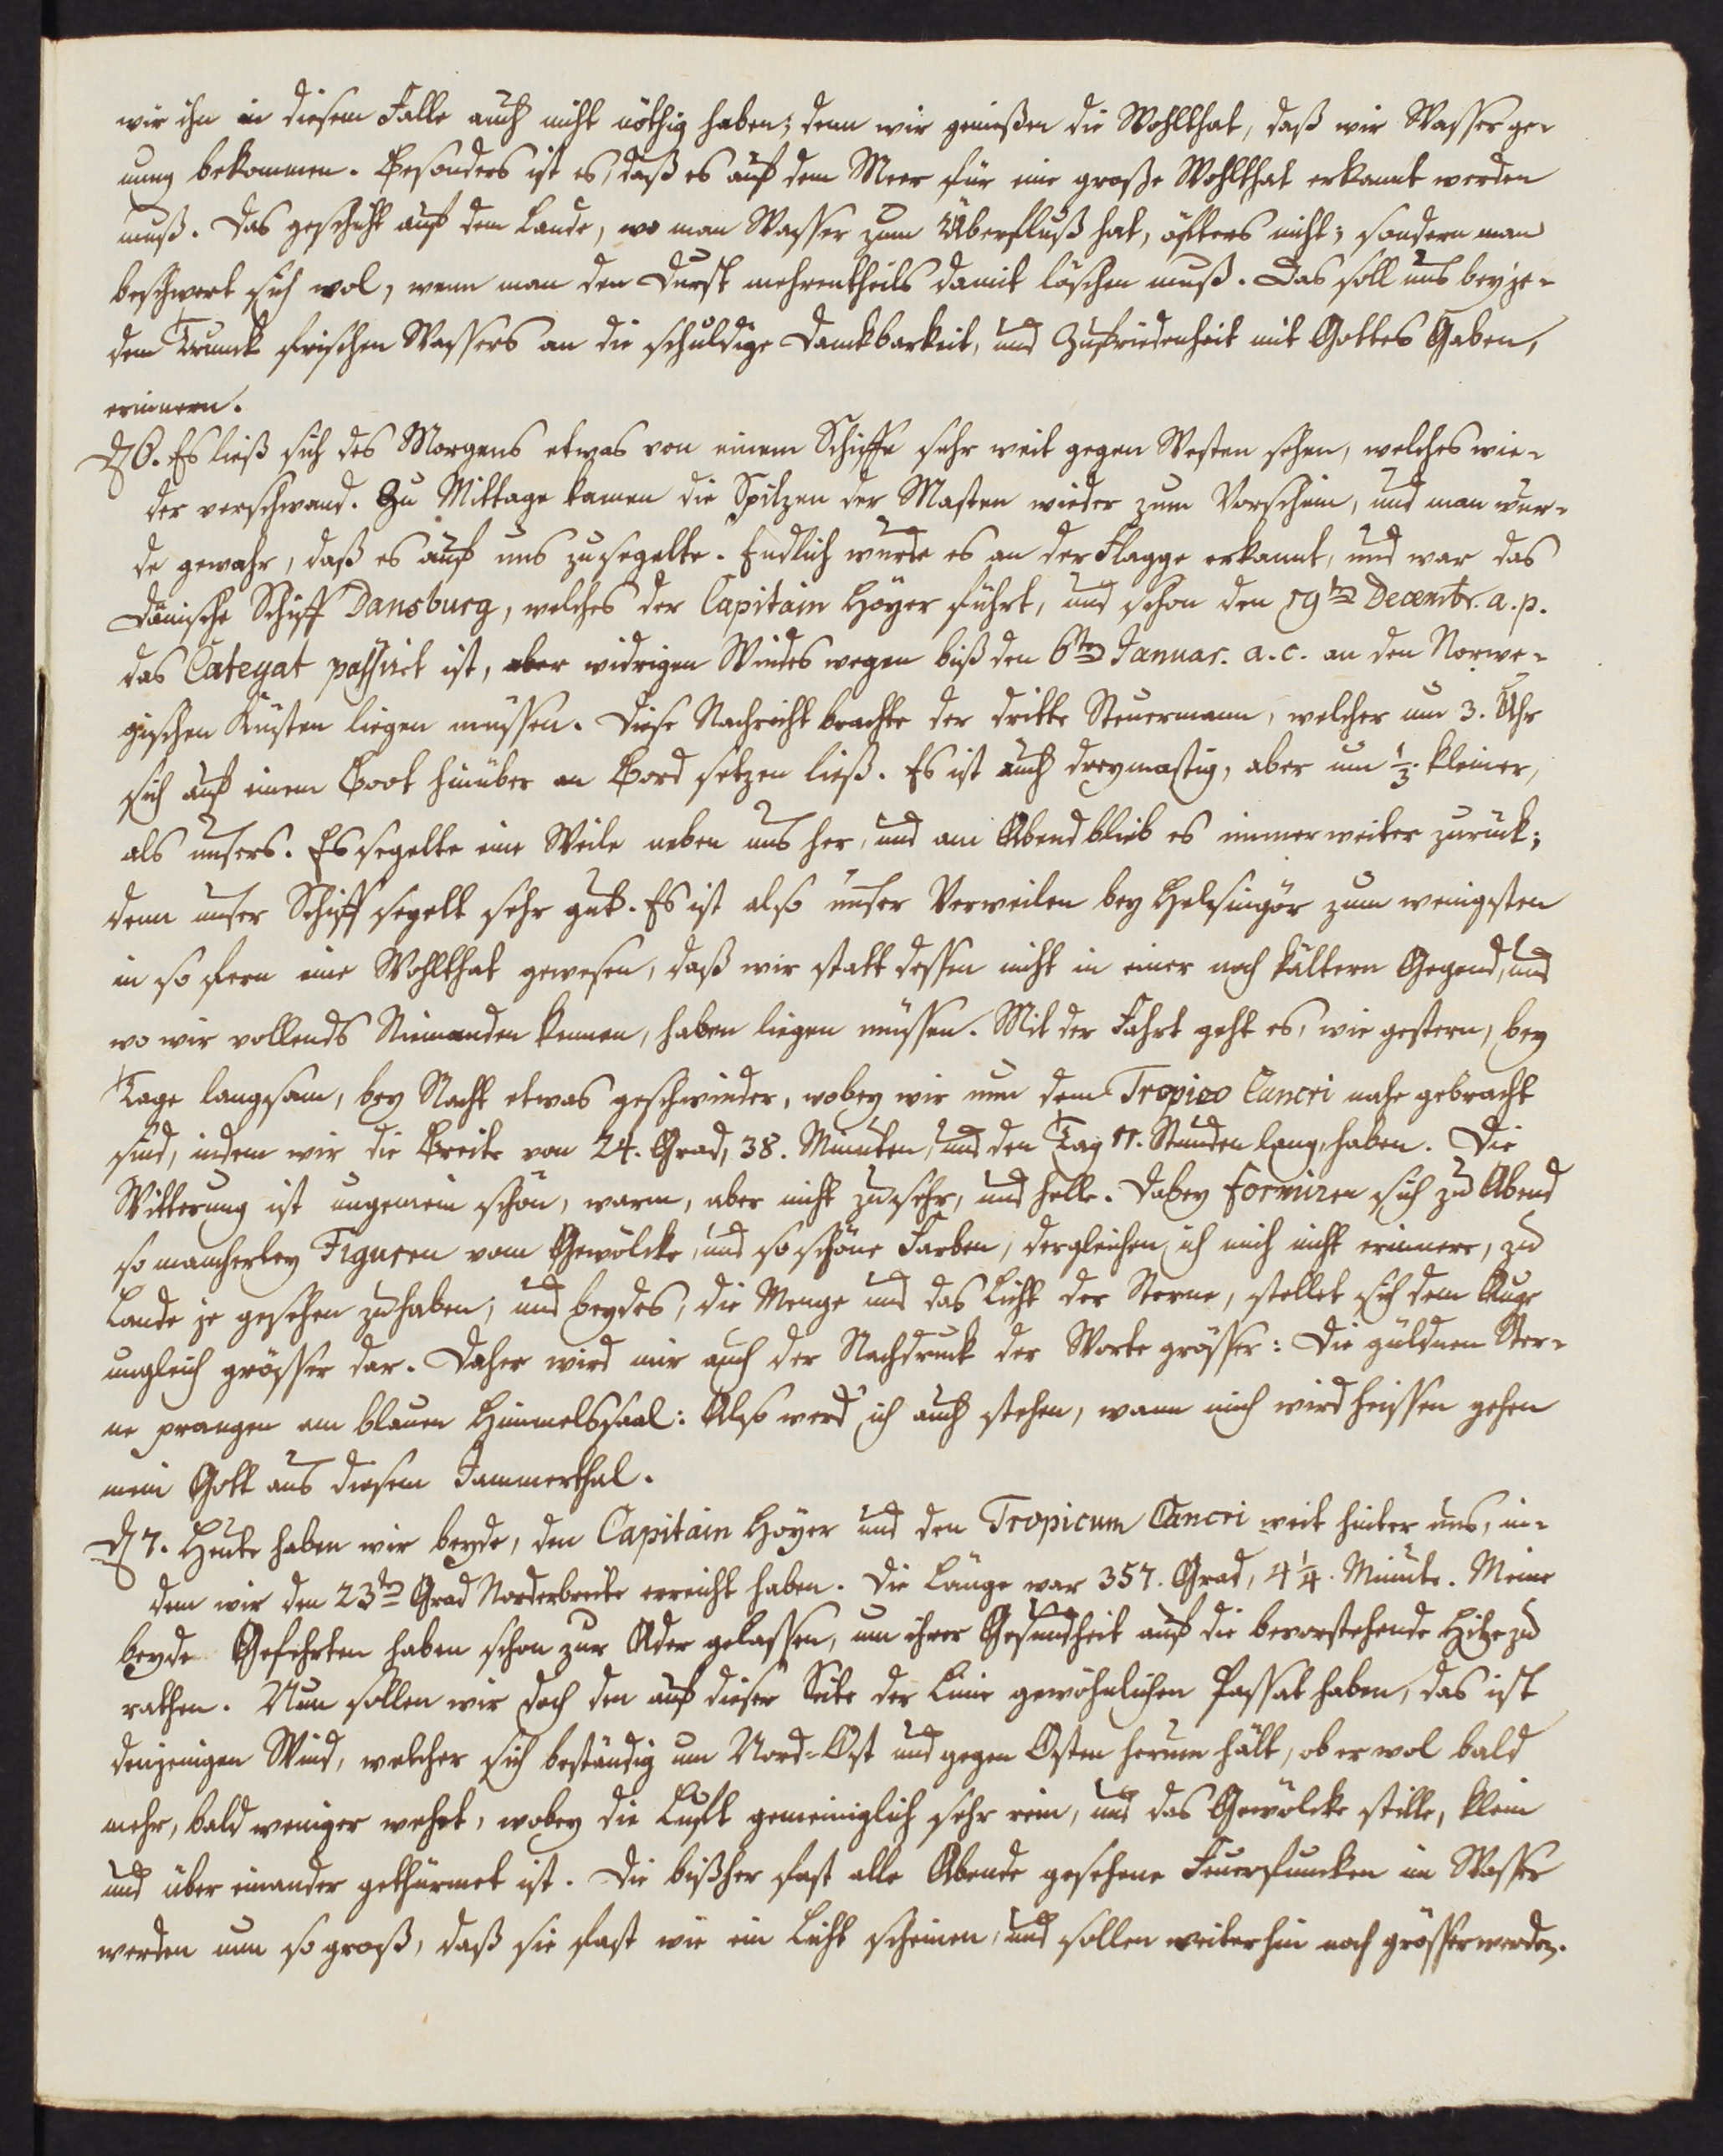 wir ihn in diesem Falle auch nicht nöthig haben; denn wir genießen die Wohlthat, daß wir Wasser ge-
nung bekommen. Besonders ist es, daß es auf dem Meer für eine große Wohlthat erkannt werden
muß. Das geschicht auf dem Lande, wo man Wasser zum Überfluß hat, öfters nicht; sondern man
beschwert sich wol, wenn man den Durst mehrentheils damit löschen muß. Das soll uns bey je-
dem Trunck frischen Wassers an die schuldige Danckbarkeit, und Zufriedenheit mit Gottes Gaben,
erinnern.
D 6. Es ließ sich des Morgens etwas von einem Schiffe sehr weit gegen Westen sehen, welches wie-
der verschwand. Zu Mittage kamen die Spitzen der Masten wieder zum Vorschein, und man wur-
de gewahr, daß es auf uns zu segelte. Endlich wurde es an der Flagge erkannt, und war das
Dänische Schiff Dansburg, welches der Capitain Höyer führt, und schon den 19ten Decembr. a. p.
das Categat passiret ist, aber widrigen Windes wegen biß den 6ten Januar. a. c. an den Norwe-
gischen Küsten liegen müssen. Diese Nachricht brachte der dritte Steuermann, welcher um 3. Uhr
sich auf einem Boot hinüber an Bord setzen ließ. Es ist auch dreymastig, aber um 1/3. kleiner,
als unsers. Es segelte eine Weile neben uns her, und am Abend blieb es immer weiter zurück;
denn unser Schiff segelt sehr gut. Es ist also unser Verweilen bey Helsingör zum wenigsten
in so fern eine Wohlthat gewesen, daß wir statt dessen nicht in einer noch kältern Gegend, und
wo wir vollends Niemanden kennen, haben liegen müssen. Mit der Fahrt geht es, wie gestern, bey
Tage langsam, bey Nacht etwas geschwinder, wobey wir nun dem Tropico Cancri nahe gebracht
sind, indem wir die Breite von 24. Grad, 38. Minuten, und den Tag 11. Stunden lang, haben. Die
Witterung ist ungemein schön, warm, aber nicht zu sehr, und helle. Dabey formiren sich zu Abend
so mancherley Figuren vom Gewölcke, und so schöne Farben, dergleichen ich mich nicht erinnere, zu
Lande je gesehen zu haben; und beydes, die Menge und das Licht der Sterne, stellet sich dem Auge
ungleich grösser dar. Daher wird mir auch der Nachdruck der Worte grösser: Die güldnen Ster-
ne prangen am blauen Himmelssaal: Also werd' ich auch stehen, wann mich wird heissen gehen
mein Gott aus diesem Jammerthal.
D 7. Heute haben wir beyde, den Capitain Höyer und den Tropicum Cancri weit hinter uns, in-
dem wir den 23ten Grad Norderbreite erreicht haben. Die Länge war 357. Grad, 4 1/4. Minute. Meine
beyde Gefehrten haben schon zur Ader gelassen, um ihrer Gesundheit auf die bevorstehende Hitze zu
rathen. Nun sollen wir doch den auf dieser Seite der Linie gewöhnlichen Passat haben, das ist
denjenigen Wind, welcher sich beständig um Nord-Ost und gegen Osten herum hält, ob er wol bald
mehr, bald weniger wehet, wobey die Luft gemeiniglich sehr rein, und das Gewölcke stille, klein
und über einander gethürmet ist. Die bißher fast alle Abende gesehene Feuerfuncken im Wasser
werden nun so groß, daß sie fast wie ein Licht scheinen, und sollen weiterhin noch grösser werden.